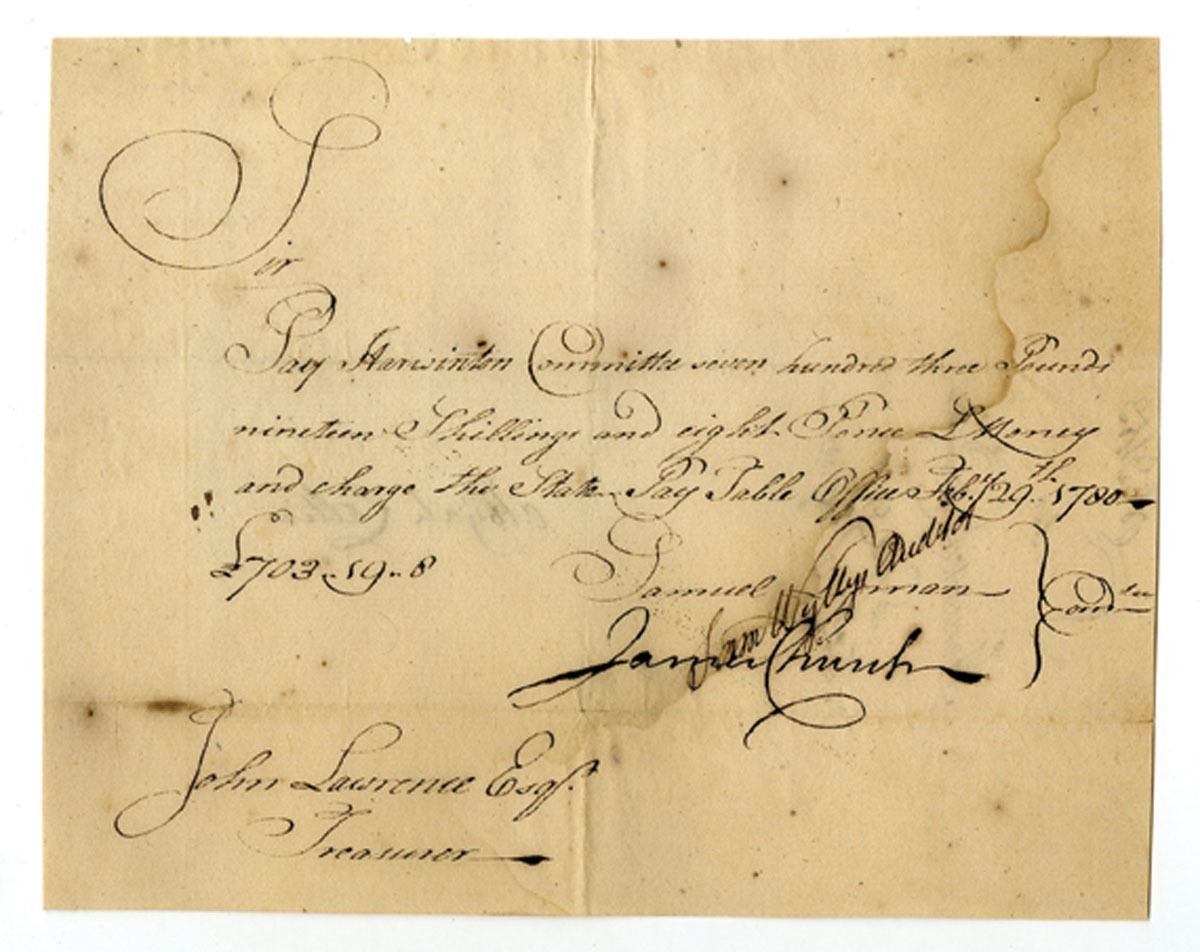 Sir
Pay Harwinton Committee seven hundred three Pounds
nineteen Shillings and eight Pence L Money
and charge the State Pay Table Office Feby 29th 1780
£703..19..8
Samuel Lyman
Sam Wyllys Auditor
James Church
Comtee
John Lawrence Esqr.
Treasurer